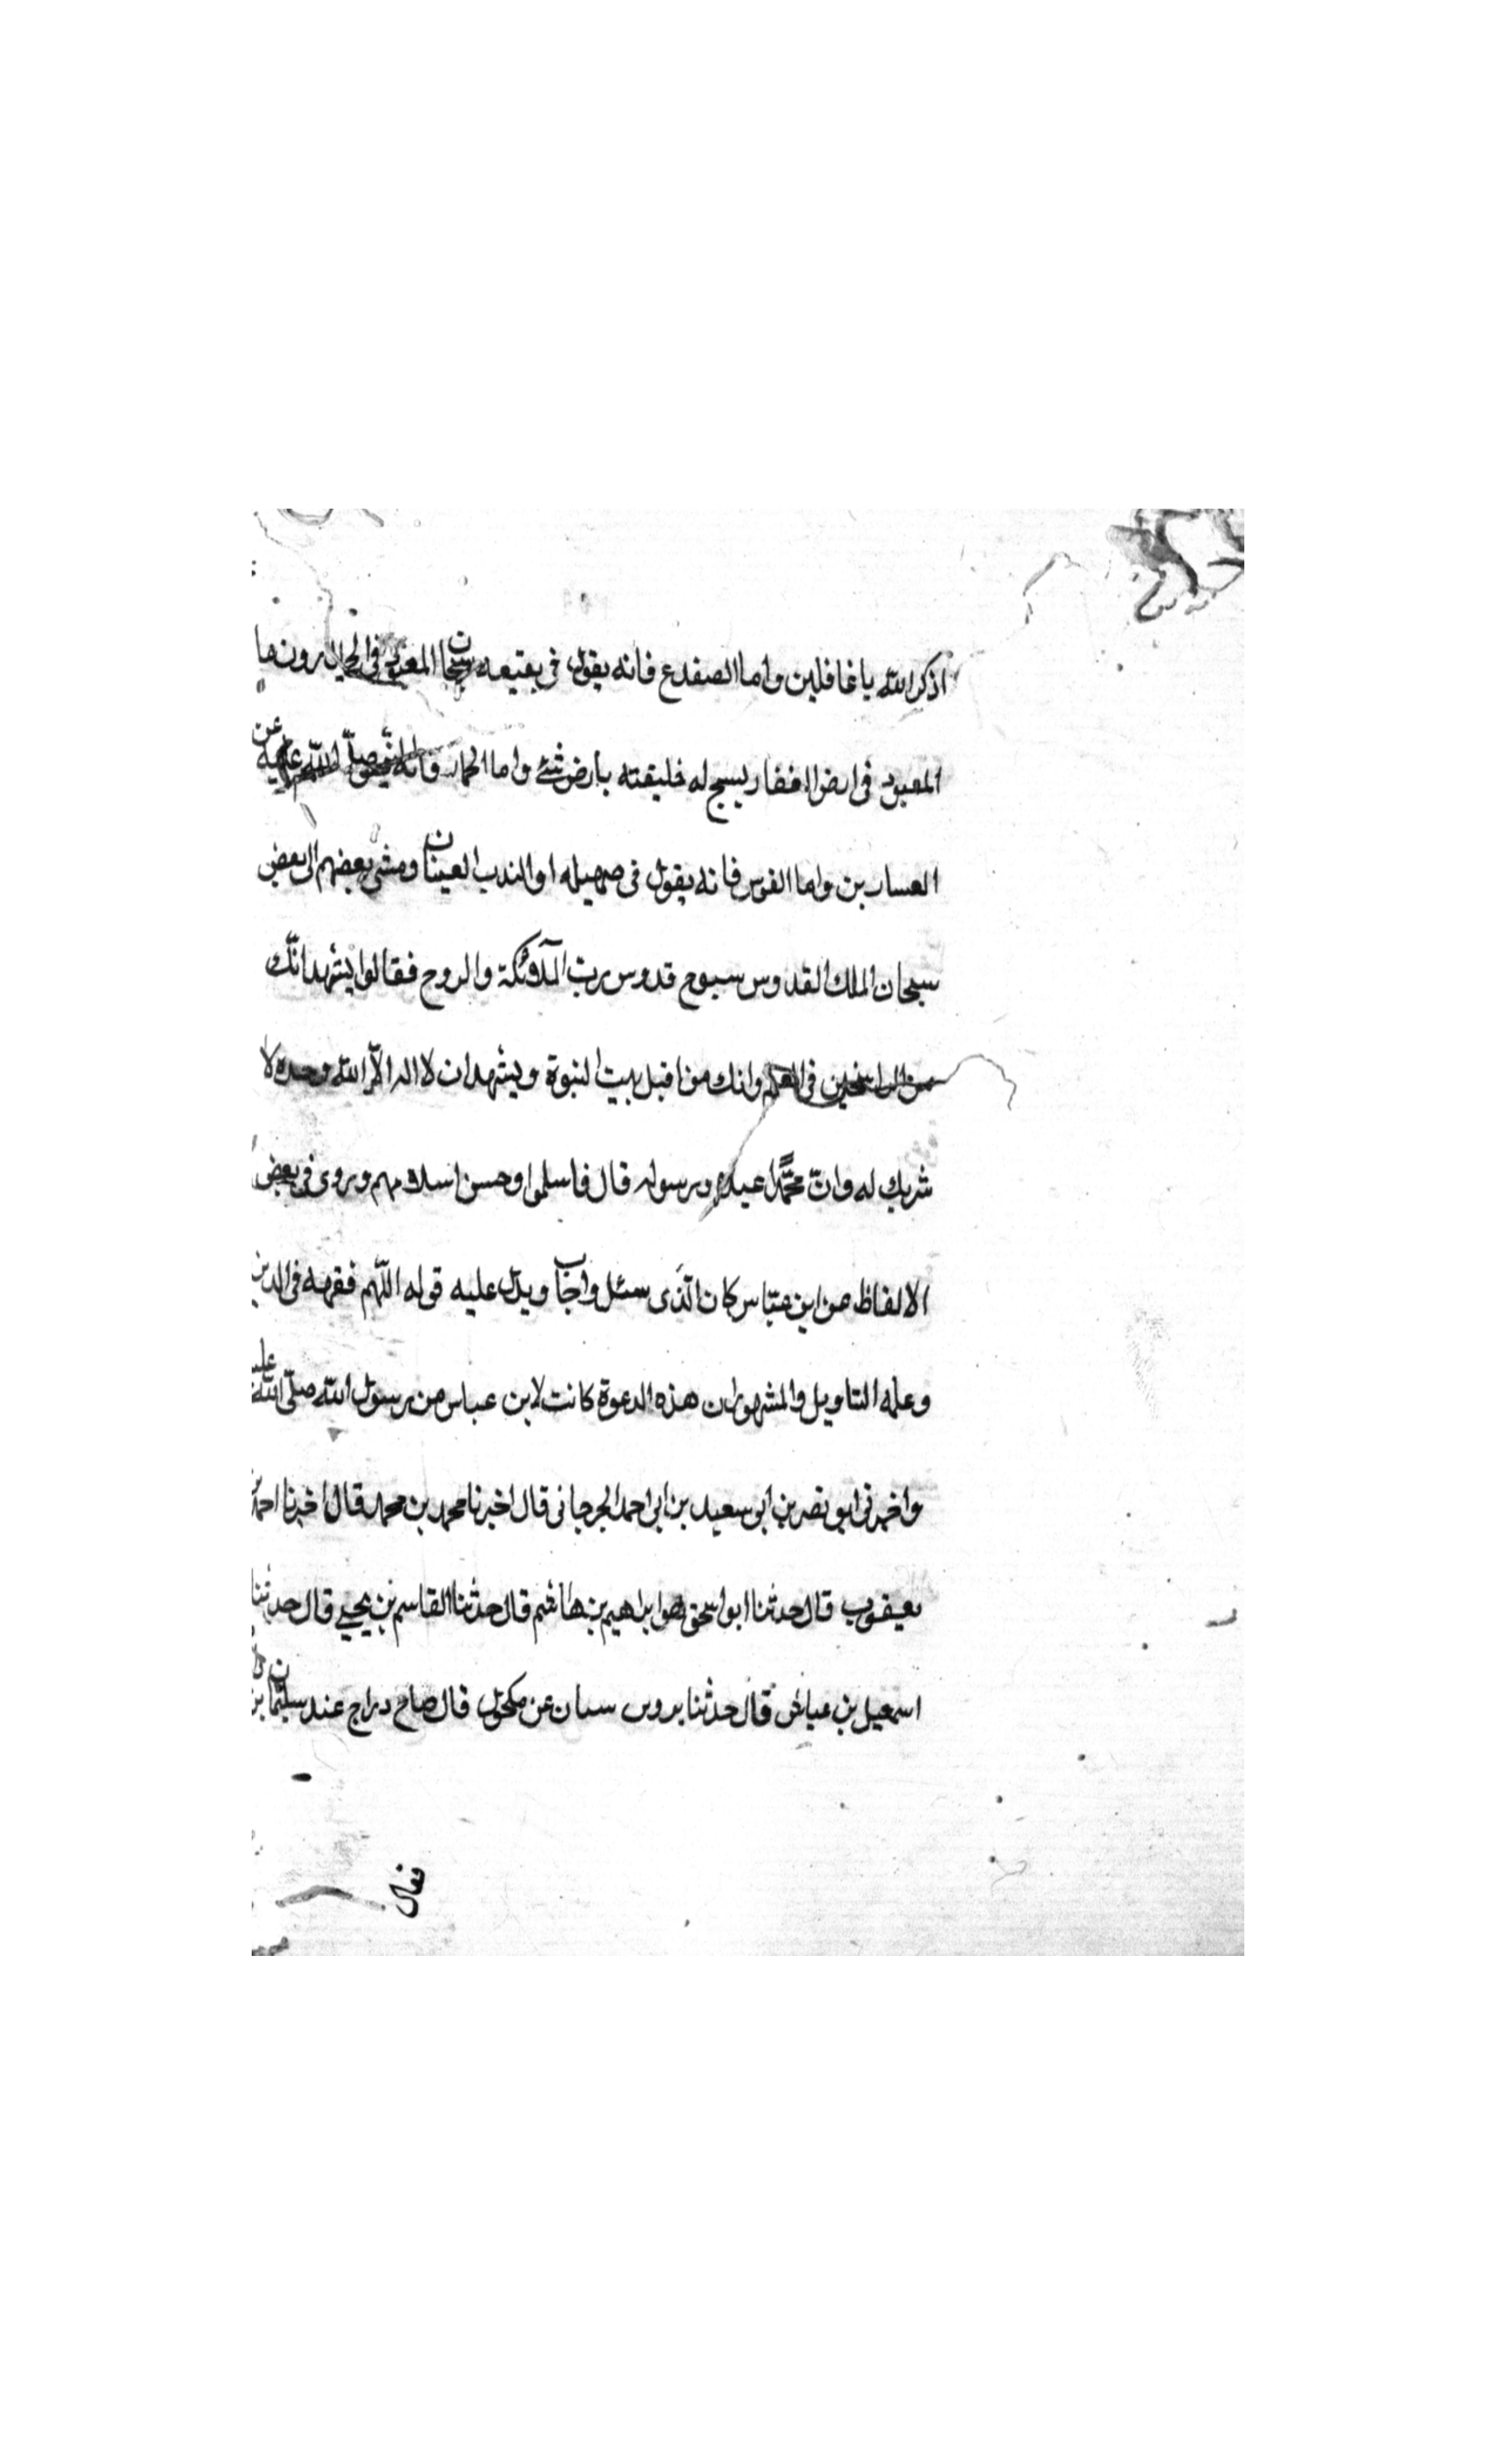 اذكر الله يا غافلين واما الصفدع فانه يقول فى يقتيعه سبحان المعبود فى
المعبود فى ارض القفار يسبح له خليقته بارض شئ واما الحمار فانه
العسارين واما الفرس فانه يقول فى صهيله اوالندب العينان ومشى بعضهم الى بعض
سبحان الملك القدوس سبوح قدوس رب الملآئكة والروح فقالوا يشهد انّك
من الراسخين فى العلم وانك من اقبل بيت النبوة ويشهد ان لا اله الّا الله وحده لا
شريك له وانّ محمّدًا عبده ورسوله قال فاسلموا وحسن اسلامهم وروى فى بعض
الالفاظ عن ابن عبّاس كان الّذى سئل واجاب ويدل عليه قوله اللّهم فقهه فى الدين
وعلمه التاويل والمشهور ان هذه الدعوة كانت لابن عباس من رسول الله صلّى الله عليه
واخبرنى ابو نصر بن ابى سعيد بن ابى احمد الجرجانى قال اخبرنا محمد بن محمد قال اخبرنا احمد بن
يعقوب قال حدثنا ابو اسحق هو ابراهيم بن هاشم قال حدثنا القاسم بن يحيى قال حدثنا
اسمعيل بن عياش قال حدثنا برد بن سنان عن مكحول قال صاح دراج عند سليمان بن
فقال